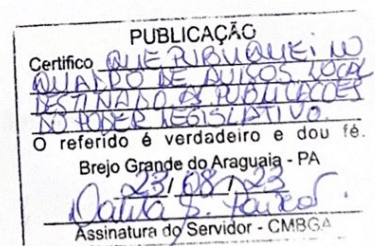 PUBLICAÇÃO
Certifico QUE PUBLIQUEI NO
QUADRO DE AVISOS LOCAL
DESTINADO ÀS PUBLICAÇÕES
DO PODER LEGISLATIVO.
O referido é verdadeiro e dou fé.
Brejo Grande do Araguaia - PA
23/08/23
S.
Assinatura do Servidor - CMBGA